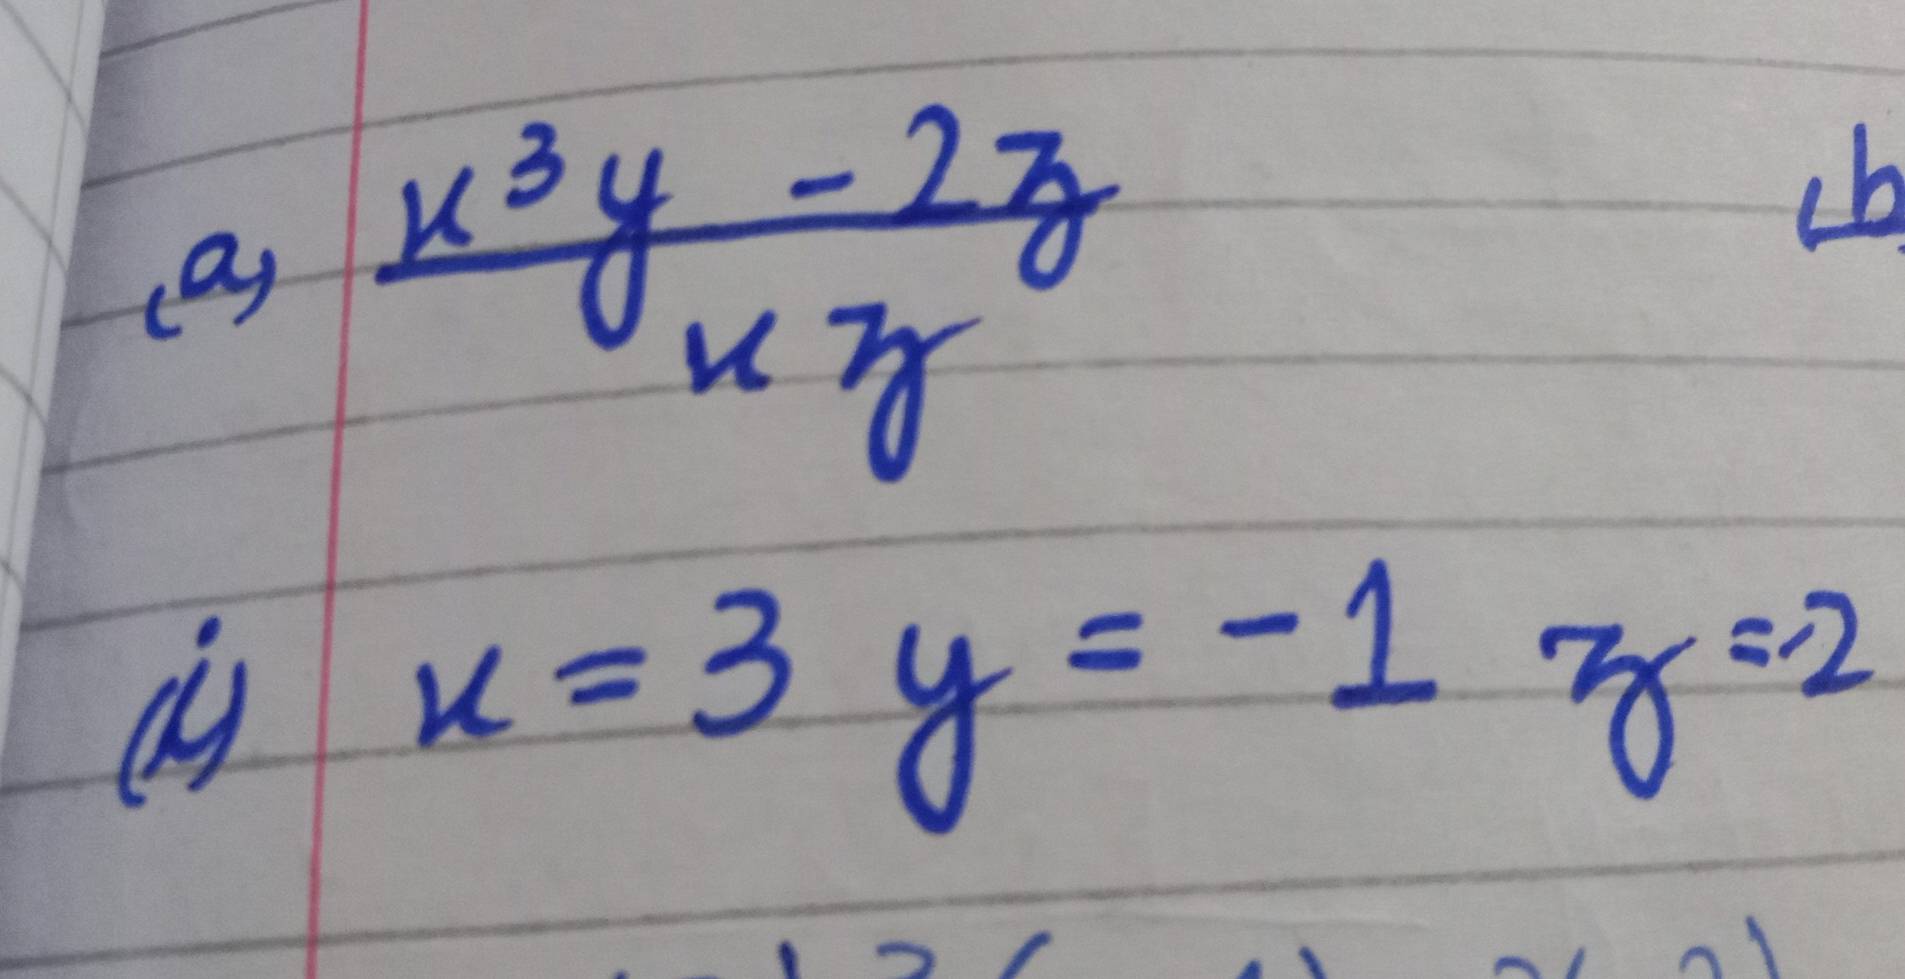 (a) x³y - 2z
xz
(b
(i) x = 3 y = -1 z = -2